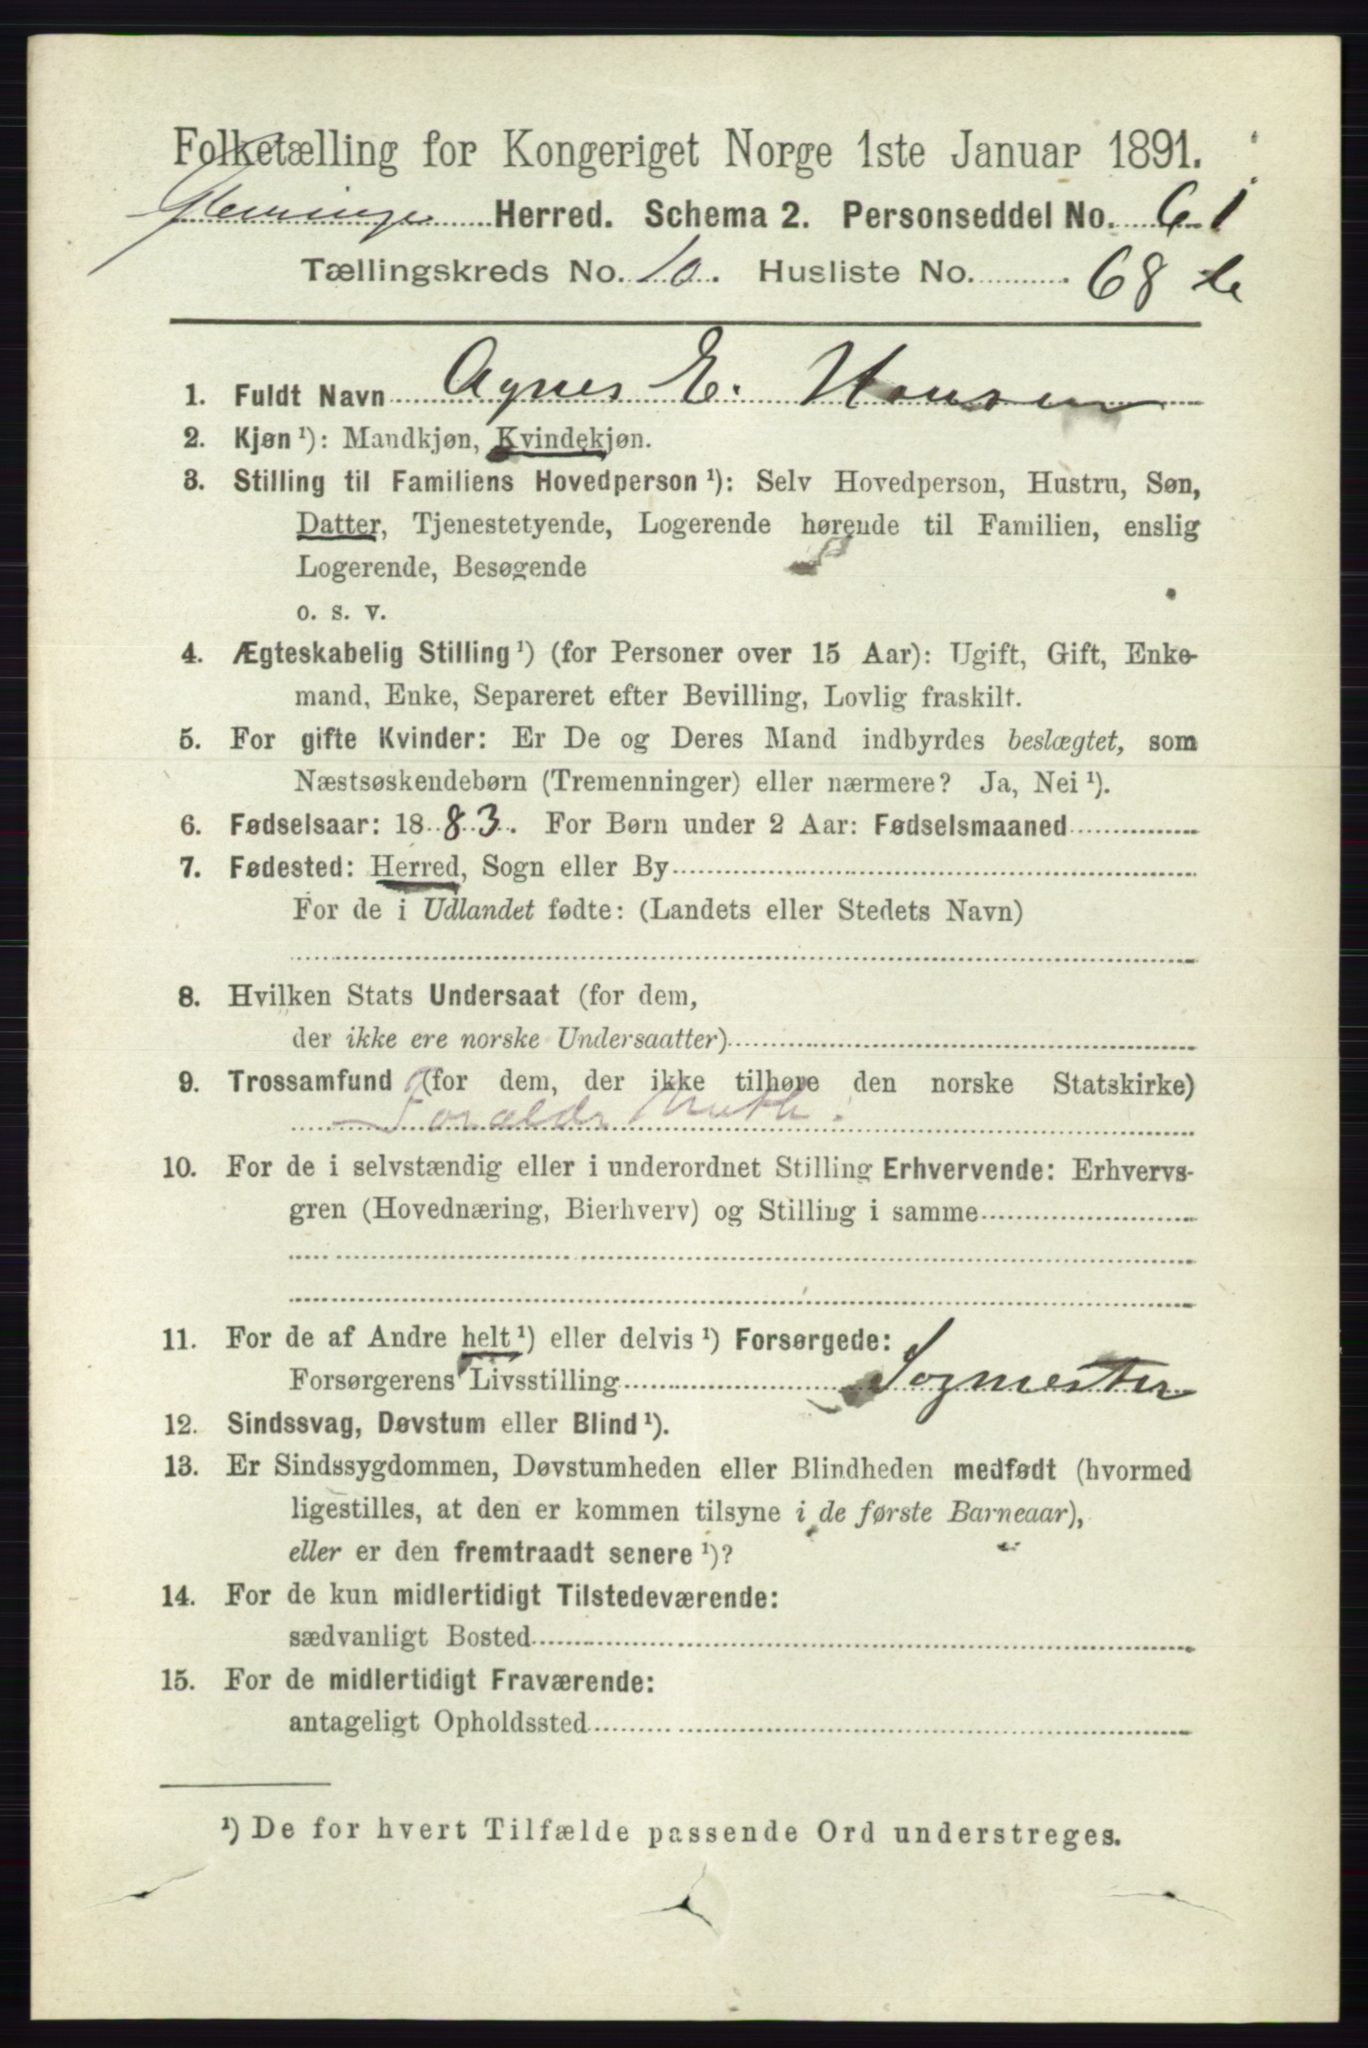 Folketælling for Kongeriget Norge 1ste Januar 1891.
Glemminge Herred. Schema 2. Personseddel No. 61
Tællingskreds No. 10. Husliste No. 68
1. Fuldt Navn Agnes E. Hansen
2. Kjøn ¹): Mandkjøn, Kvindekjøn.
3. Stilling til Familiens Hovedperson ¹): Selv Hovedperson, Hustru, Søn,
Datter, Tjenestetyende, Logerende hørende til Familien, enslig
Logerende, Besøgende
o. s. v.
4. Ægteskabelig Stilling ¹) (for Personer over 15 Aar): Ugift, Gift, Enke-
mand, Enke, Separeret efter Bevilling, Lovlig fraskilt.
5. For gifte Kvinder: Er De og Deres Mand indbyrdes beslægtet, som
Næstsøskendebørn (Tremenninger) eller nærmere? Ja, Nei ¹).
6. Fødselsaar: 1883. For Børn under 2 Aar: Fødselsmaaned
7. Fødested: Herred, Sogn eller By
For de i Udlandet fødte: (Landets eller Stedets Navn)
8. Hvilken Stats Undersaat (for dem,
der ikke ere norske Undersaatter)
9. Trossamfund (for dem, der ikke tilhøre den norske Statskirke)
10. For de i selvstændig eller i underordnet Stilling Erhvervende: Erhvervs-
gren (Hovednæring, Bierhverv) og Stilling i samme
11. For de af Andre helt ¹) eller delvis ¹) Forsørgede:
Forsørgerens Livsstilling Sagmester
12. Sindssvag, Døvstum eller Blind ¹).
13. Er Sindssygdommen, Døvstumheden eller Blindheden medfødt (hvormed
ligestilles, at den er kommen tilsyne i de første Barneaar),
eller er den fremtraadt senere ¹)?
14. For de kun midlertidigt Tilstedeværende:
sædvanligt Bosted
15. For de midlertidigt Fraværende:
antageligt Opholdssted
¹) De for hvert Tilfælde passende Ord understreges.